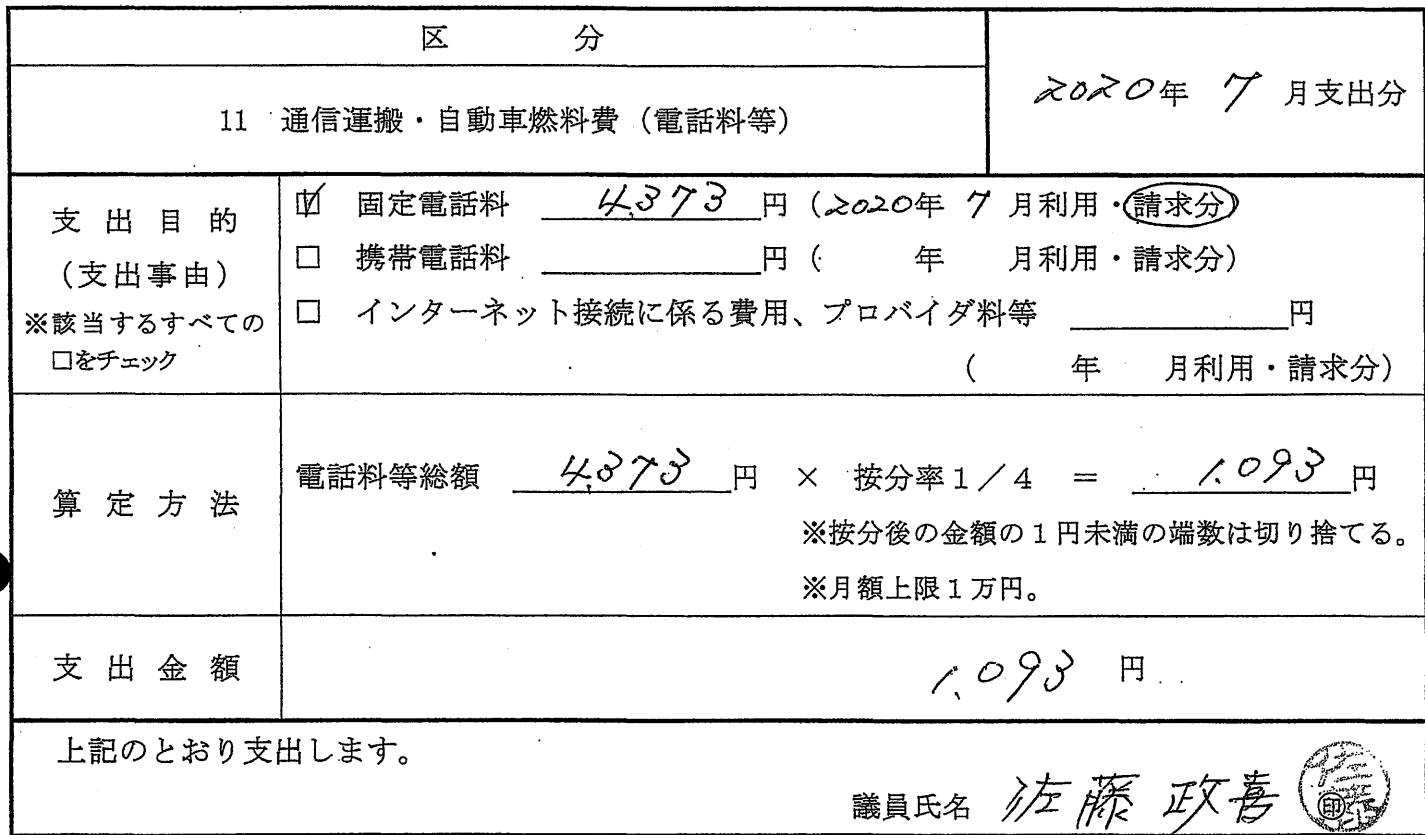 区 分
2020年 7 月支出分
11 通信運搬・自動車燃料費(電話料等)
支出目的
(支出事由)
※該当するすべての
□をチェック
☑ 固定電話料 4,373 円(2020年 7 月利用・請求分)
□ 携帯電話料 円( 年 月利用・請求分)
□ インターネット接続に係る費用、プロバイダ料等 円
( 年 月利用・請求分)
算定方法
電話料等総額 4,373 円 × 按分率1/4 = 1,093 円
※按分後の金額の1円未満の端数は切り捨てる。
※月額上限1万円。
支出金額
1,093 円
上記のとおり支出します。
議員氏名 佐藤 政喜 佐藤 印